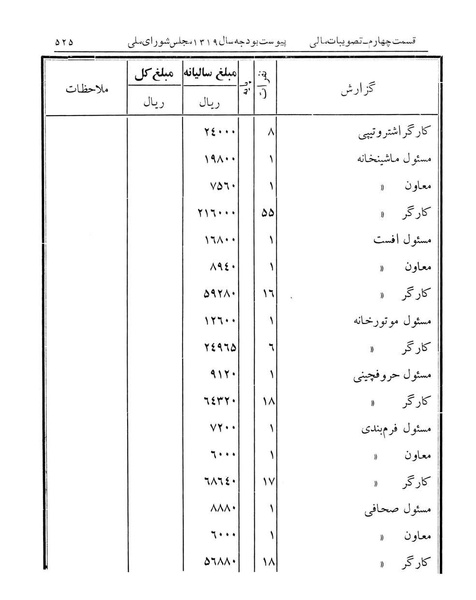 قسمت چهارم ـ تصویبات مالی پیوست بودجه سال ۱۳۱۹ مجلس شورای ملی ۵۲۵
گزارش نفرات پایه مبلغ سالیانه ریال مبلغ کل ریال ملاحظات
کارگر اشتروتیپی ۸ ۲٤۰۰۰
مسئول ماشینخانه ۱ ۱۹۸۰۰
معاون » ۱ ۷۵٦۰
کارگر » ۵۵ ۲۱٦۰۰۰
مسئول افست ۱ ۱٦۸۰۰
معاون » ۱ ۸۹٤۰
کارگر » ۱٦ ۵۹۲۸۰
مسئول موتورخانه ۱ ۱۲٦۰۰
کارگر » ٦ ۲٤۹٦۵
مسئول حروفچینی ۱ ۹۱۲۰
کارگر » ۱۸ ٦٤۳۲۰
مسئول فرم‌بندی ۱ ۷۲۰۰
معاون » ۱ ٦۰۰۰
کارگر » ۱۷ ٦۸٦٤۰
مسئول صحافی ۱ ۸۸۸۰
معاون » ۱ ٦۰۰۰
کارگر » ۱۸ ۵٦۸۸۰